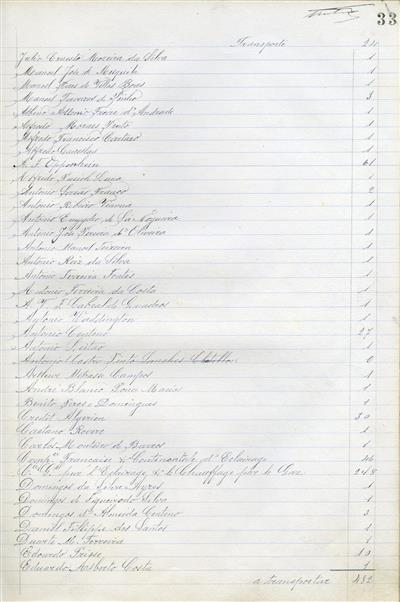 33
Transporte 210
Julio Ernesto Moreira da Silva 1
Manoel José de Mesquita 1
Manoel Paes de Villas Boas 1
Manoel Tavares de Pinho 3
Antonio Ferrer d'Andrade 1
Alfredo Moraes Pinto 1
Alfredo Francisco Caetano 1
Alfredo Cancellas 1
A. F. Oppenheim 61
Alfredo 1
Antonio Franco 2
Antonio Ribeiro Vianna 1
Antonio Emygdio de Sá Nogueira 1
Antonio José Pereira d'Oliveira 1
Antonio Manoel Teixeira 1
Antonio Ruiz da Silva 1
Antonio Ferreira Fontes 1
Antonio Ferreira da Costa 1
A. F. Cabral de Quadros 1
Antonio Waddington 1
Antonio Centeno 27
Antonio Leitão 1
Antonio Castro Pinto Sanches 0
Campos 1
André Blanco Maria 1
Benito Peres e Dominguez 1
Credit Algerien 30
Caetano 1
Carlos Monteiro de Barros 1
Comp.ie Française & Continentale d'Eclairage 46
C.ie G.le pour l'Eclairage & le Chauffage par le Gaz 248
Domingos da Silva Ayres 1
Domingos de Figueiredo Silva 1
Domingos d'Almeida Centeno 3
Daniel Filippe dos Santos 1
Duarte M. Ferreira 1
Edouardo 10
Eduardo Alberto Costa 1
a transportar 482